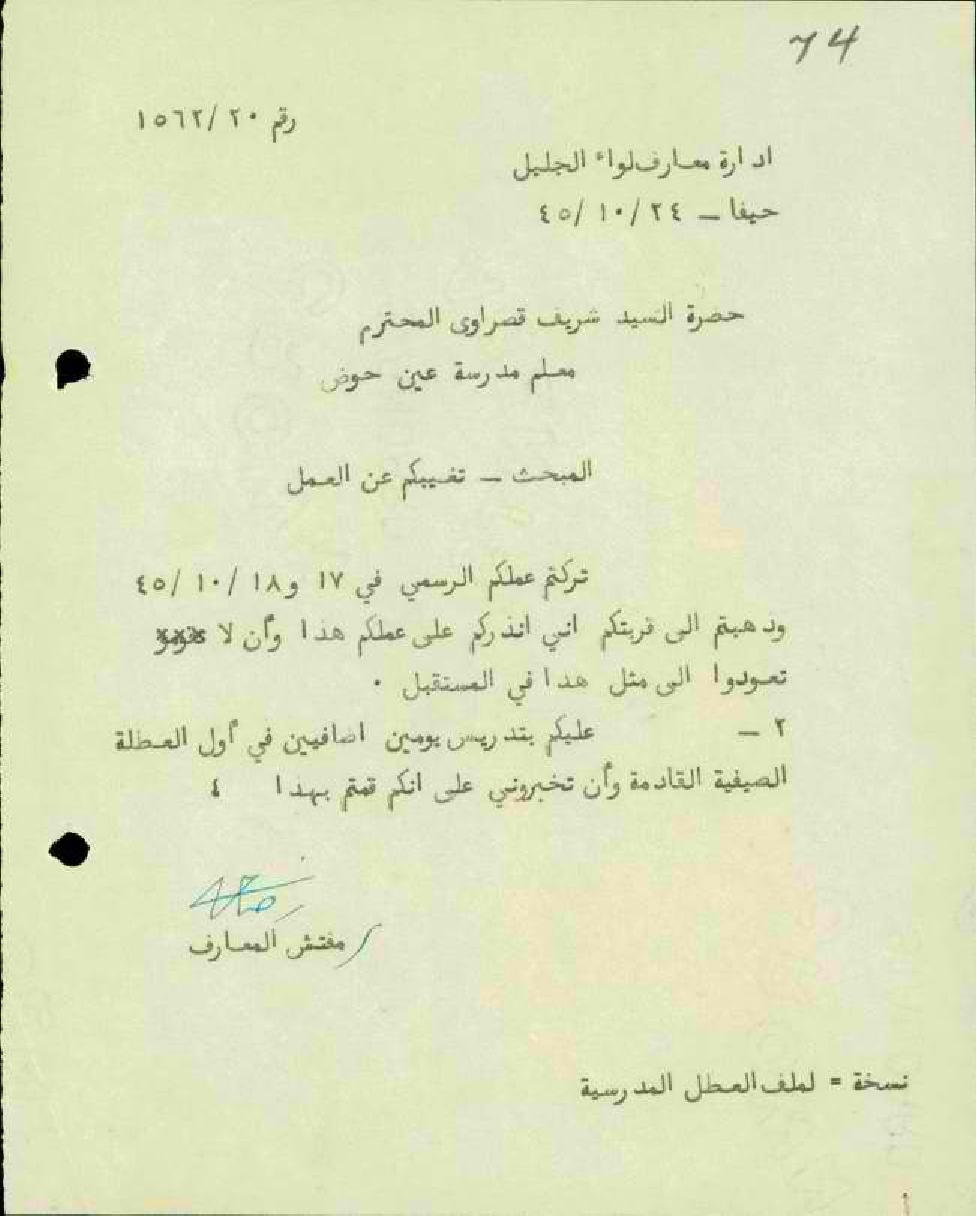 74
رقم ١٥٦٢/٢٠
ادارة معارف لواء الجليل
حيفا – ٤٥/١٠/٢٤
حضرة السيد شريف قصراوى المحترم
معلم مدرسة عين حوض
المبحث – تغيبكم عن العمل
تركتم عملكم الرسمي في ١٧ و١٨/١٠/٤٥
وذهبتم الى قريتكم اني انذركم على عملكم هذا وأن لا
تعودوا الى مثل هذا في المستقبل ٠
٢ – عليكم بتدريس يومين اضافيين في أول العطلة
الصيفية القادمة وأن تخبروني على انكم قمتم بهذا ٤
مفتش المعارف
نسخة = لملف العطل المدرسية